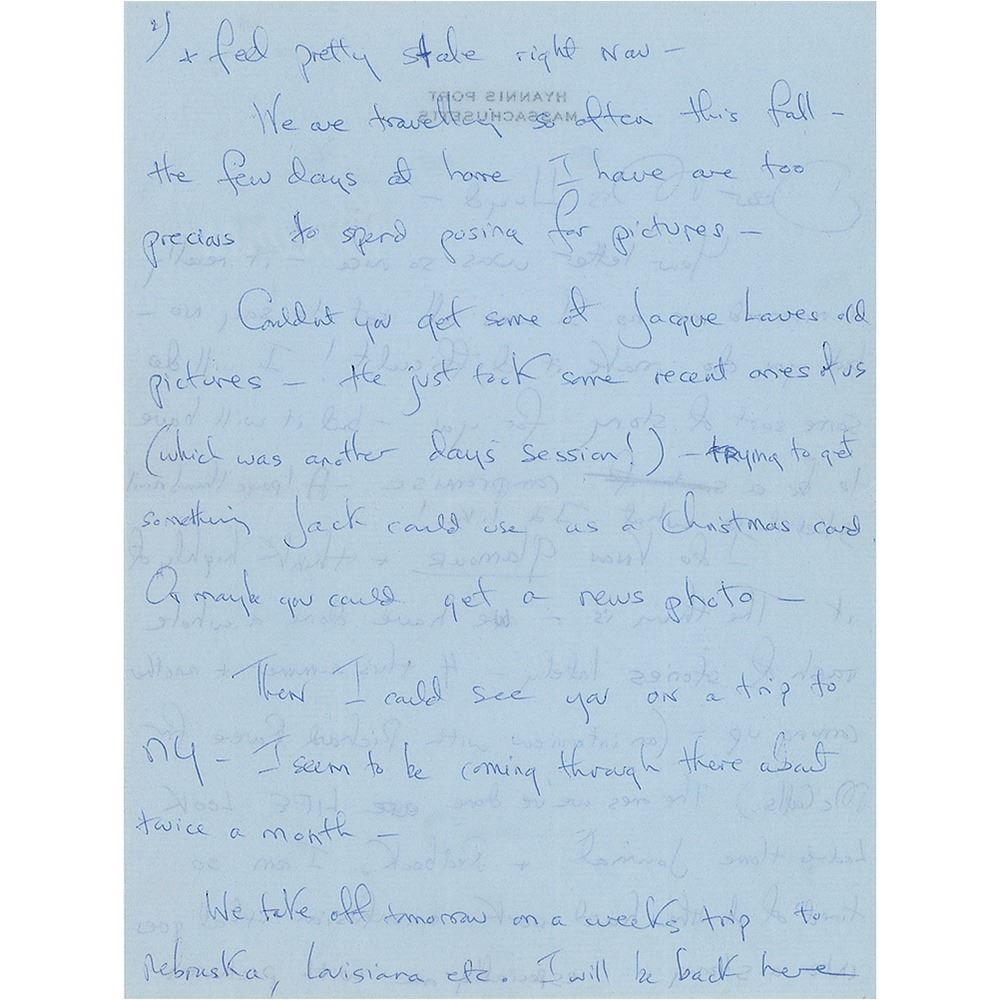 2)
+ feel pretty stale right now —
HYANNIS PORT
MASSACHUSETTS
We are travelling so often this fall —
the few days at home I have are too
precious to spend posing for pictures —
Couldnt you get some of Jacque Lowes old
pictures — He just took some recent ones of us
(which was another days session!) — trying to get
something Jack could use as a Christmas card
Or maybe you could get a news photo —
Then I could see you on a trip to
NY — I seem to be coming through there about
twice a month —
We take off tomorrow on a weeks trip to
Nebraska, Louisiana etc. I will be back here